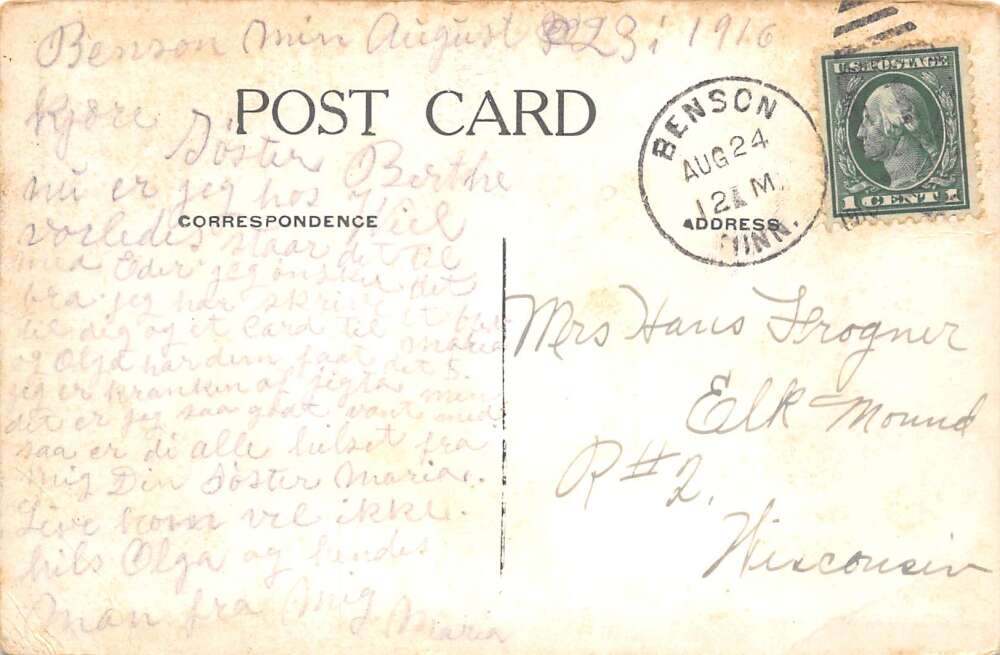 Benson Min August 23, 1916
POST CARD
kjære Söster Berthe
nu er jeg hos
vorledes staar det til
med Eder jeg onsker det
bra. jeg har skrive et
til dig og et Card til Maria
og Olga har dem faat det
jeg er kranken af
det er jeg saa godt vant med
saa er di alle hilset fra
mig Din Söster Maria.
vel ikke.
hils Olga og hendes
Man fra Mig
Maria
CORRESPONDENCE
ADDRESS
BENSON
AUG 24
12 M
MINN.
U.S. POSTAGE
1 CENT 1
Mrs Hans Frogner
Elk Mound
R # 2.
Wisconsin